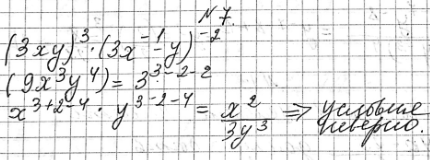 №7.
(3xy)³ · (3x⁻¹y)⁻²
(9x³y⁴) = 3³⁻²⁻²
x³⁺²⁻⁴ · y³⁻²⁻⁴ = x²/3y³ ⇒ условие неверно.